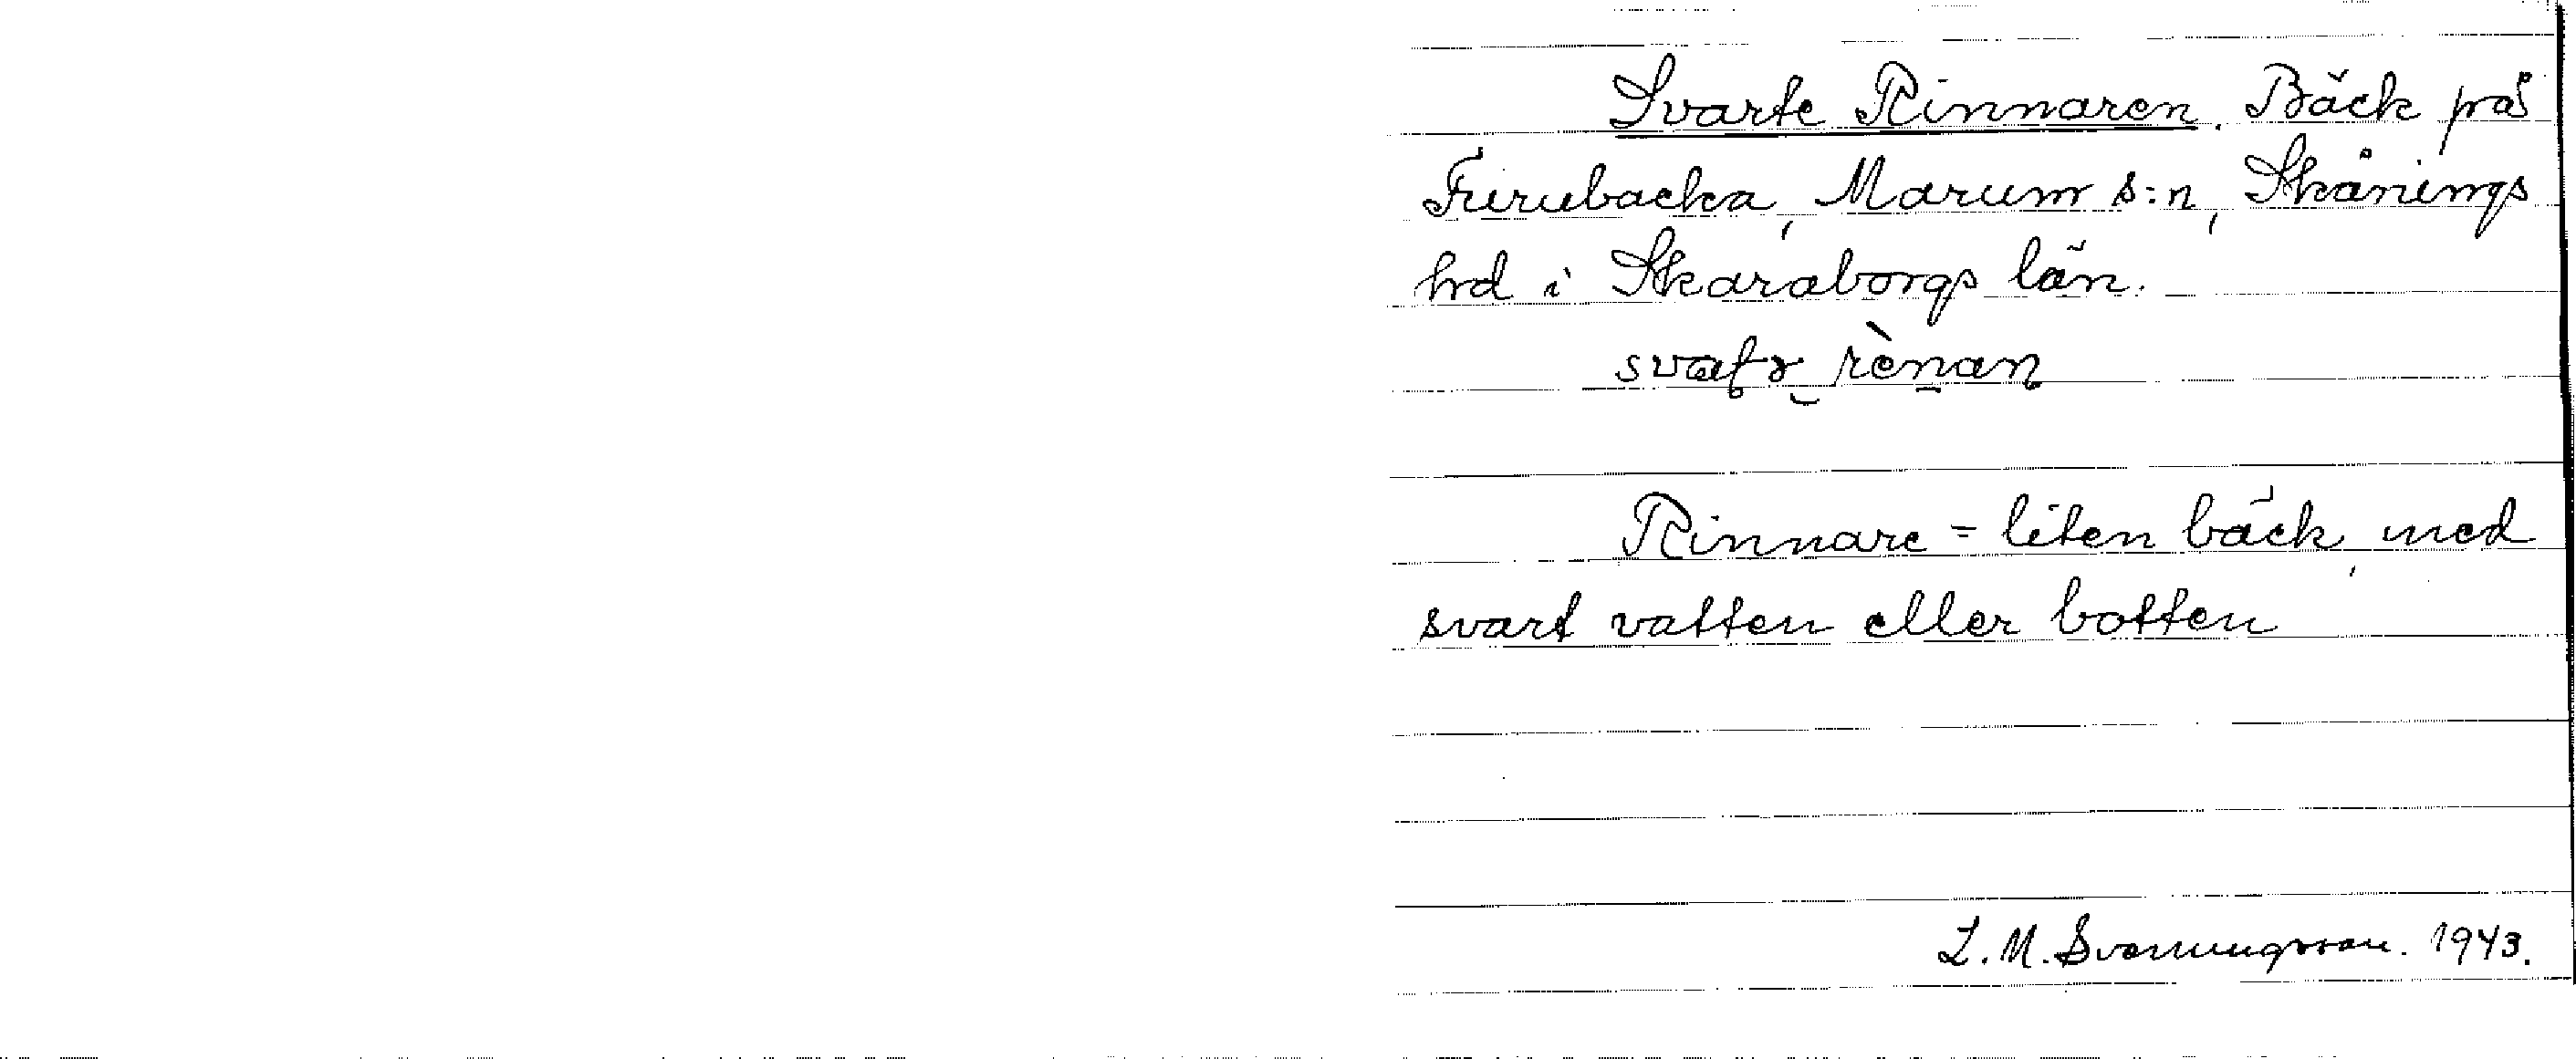 Svarte Rinnaren. Bäck på
Furubacka, Marum s:n, Skånings
hrd i Skaraborgs län.
rènan
Rinnare = liten bäck, med
svart vatten eller botten
L. M. Svenungsson. 1943.